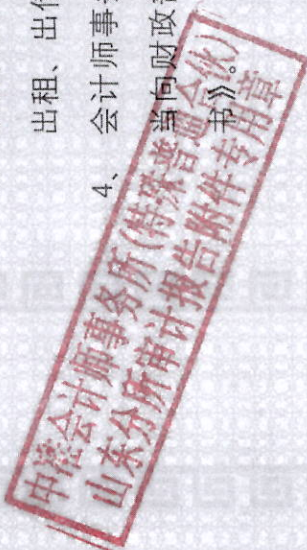 出租、出
4、 会计师事务
当向财政
书》。
中准会计师事务所(特殊普通合伙)
山东分所审计报告附件专用章